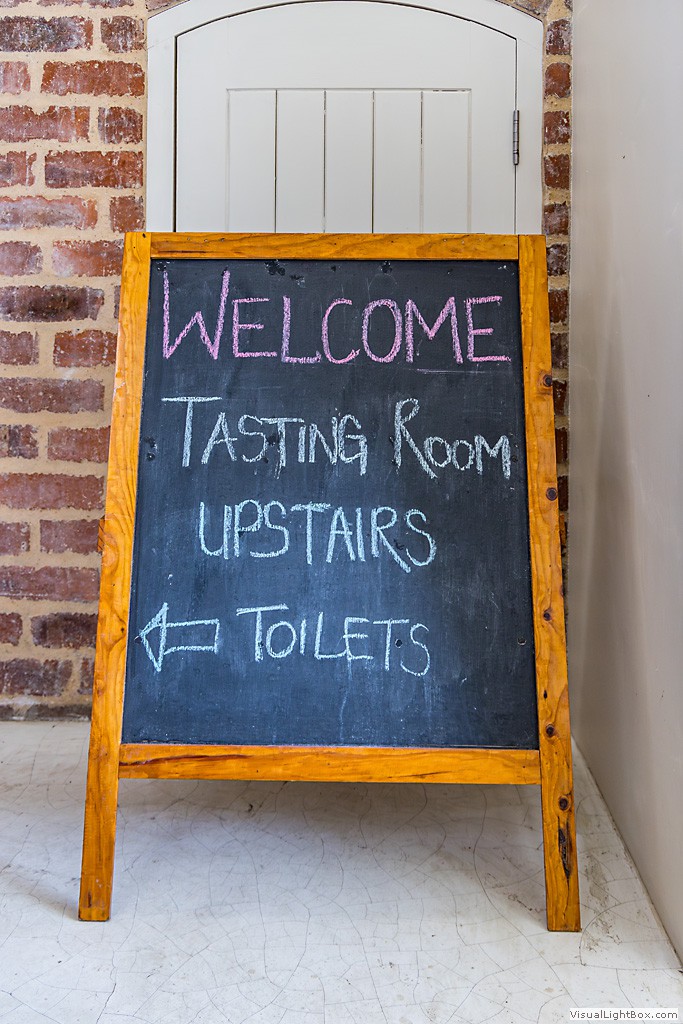 WELCOME
TASTING ROOM
UPSTAIRS
TOILETS
VisualLightBox.com